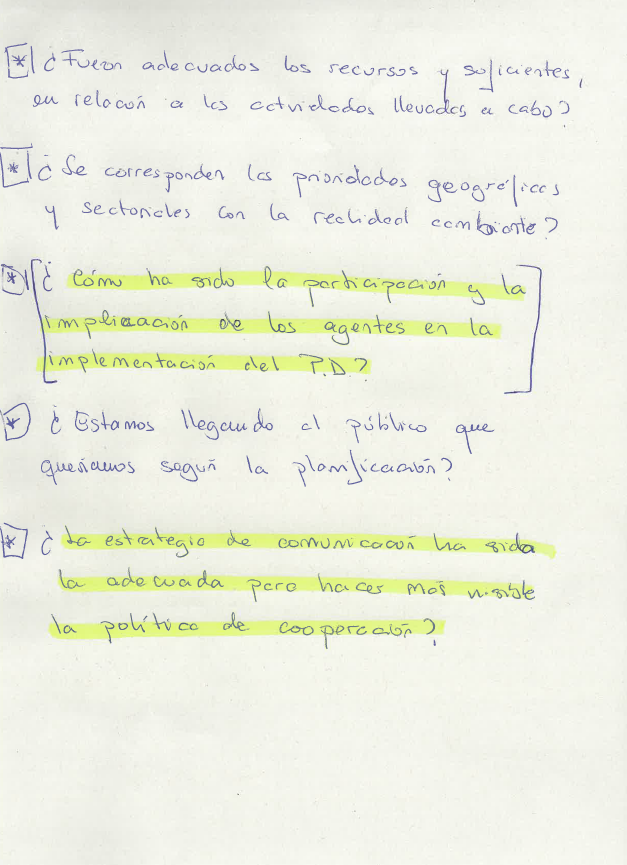 * ¿Fueron adecuados los recursos y suficientes,
en relación a las actividades llevadas a cabo?
* ¿Se corresponden las prioridades geográficas
y sectoriales con la realidad cambiante?
* [¿Cómo ha sido la participación y la
implicación de los agentes en la
implementación del P.D.?]
* ¿Estamos llegando al público que
queríamos según la planificación?
* ¿La estrategia de comunicación ha sido
la adecuada para hacer más visible
la política de cooperación?